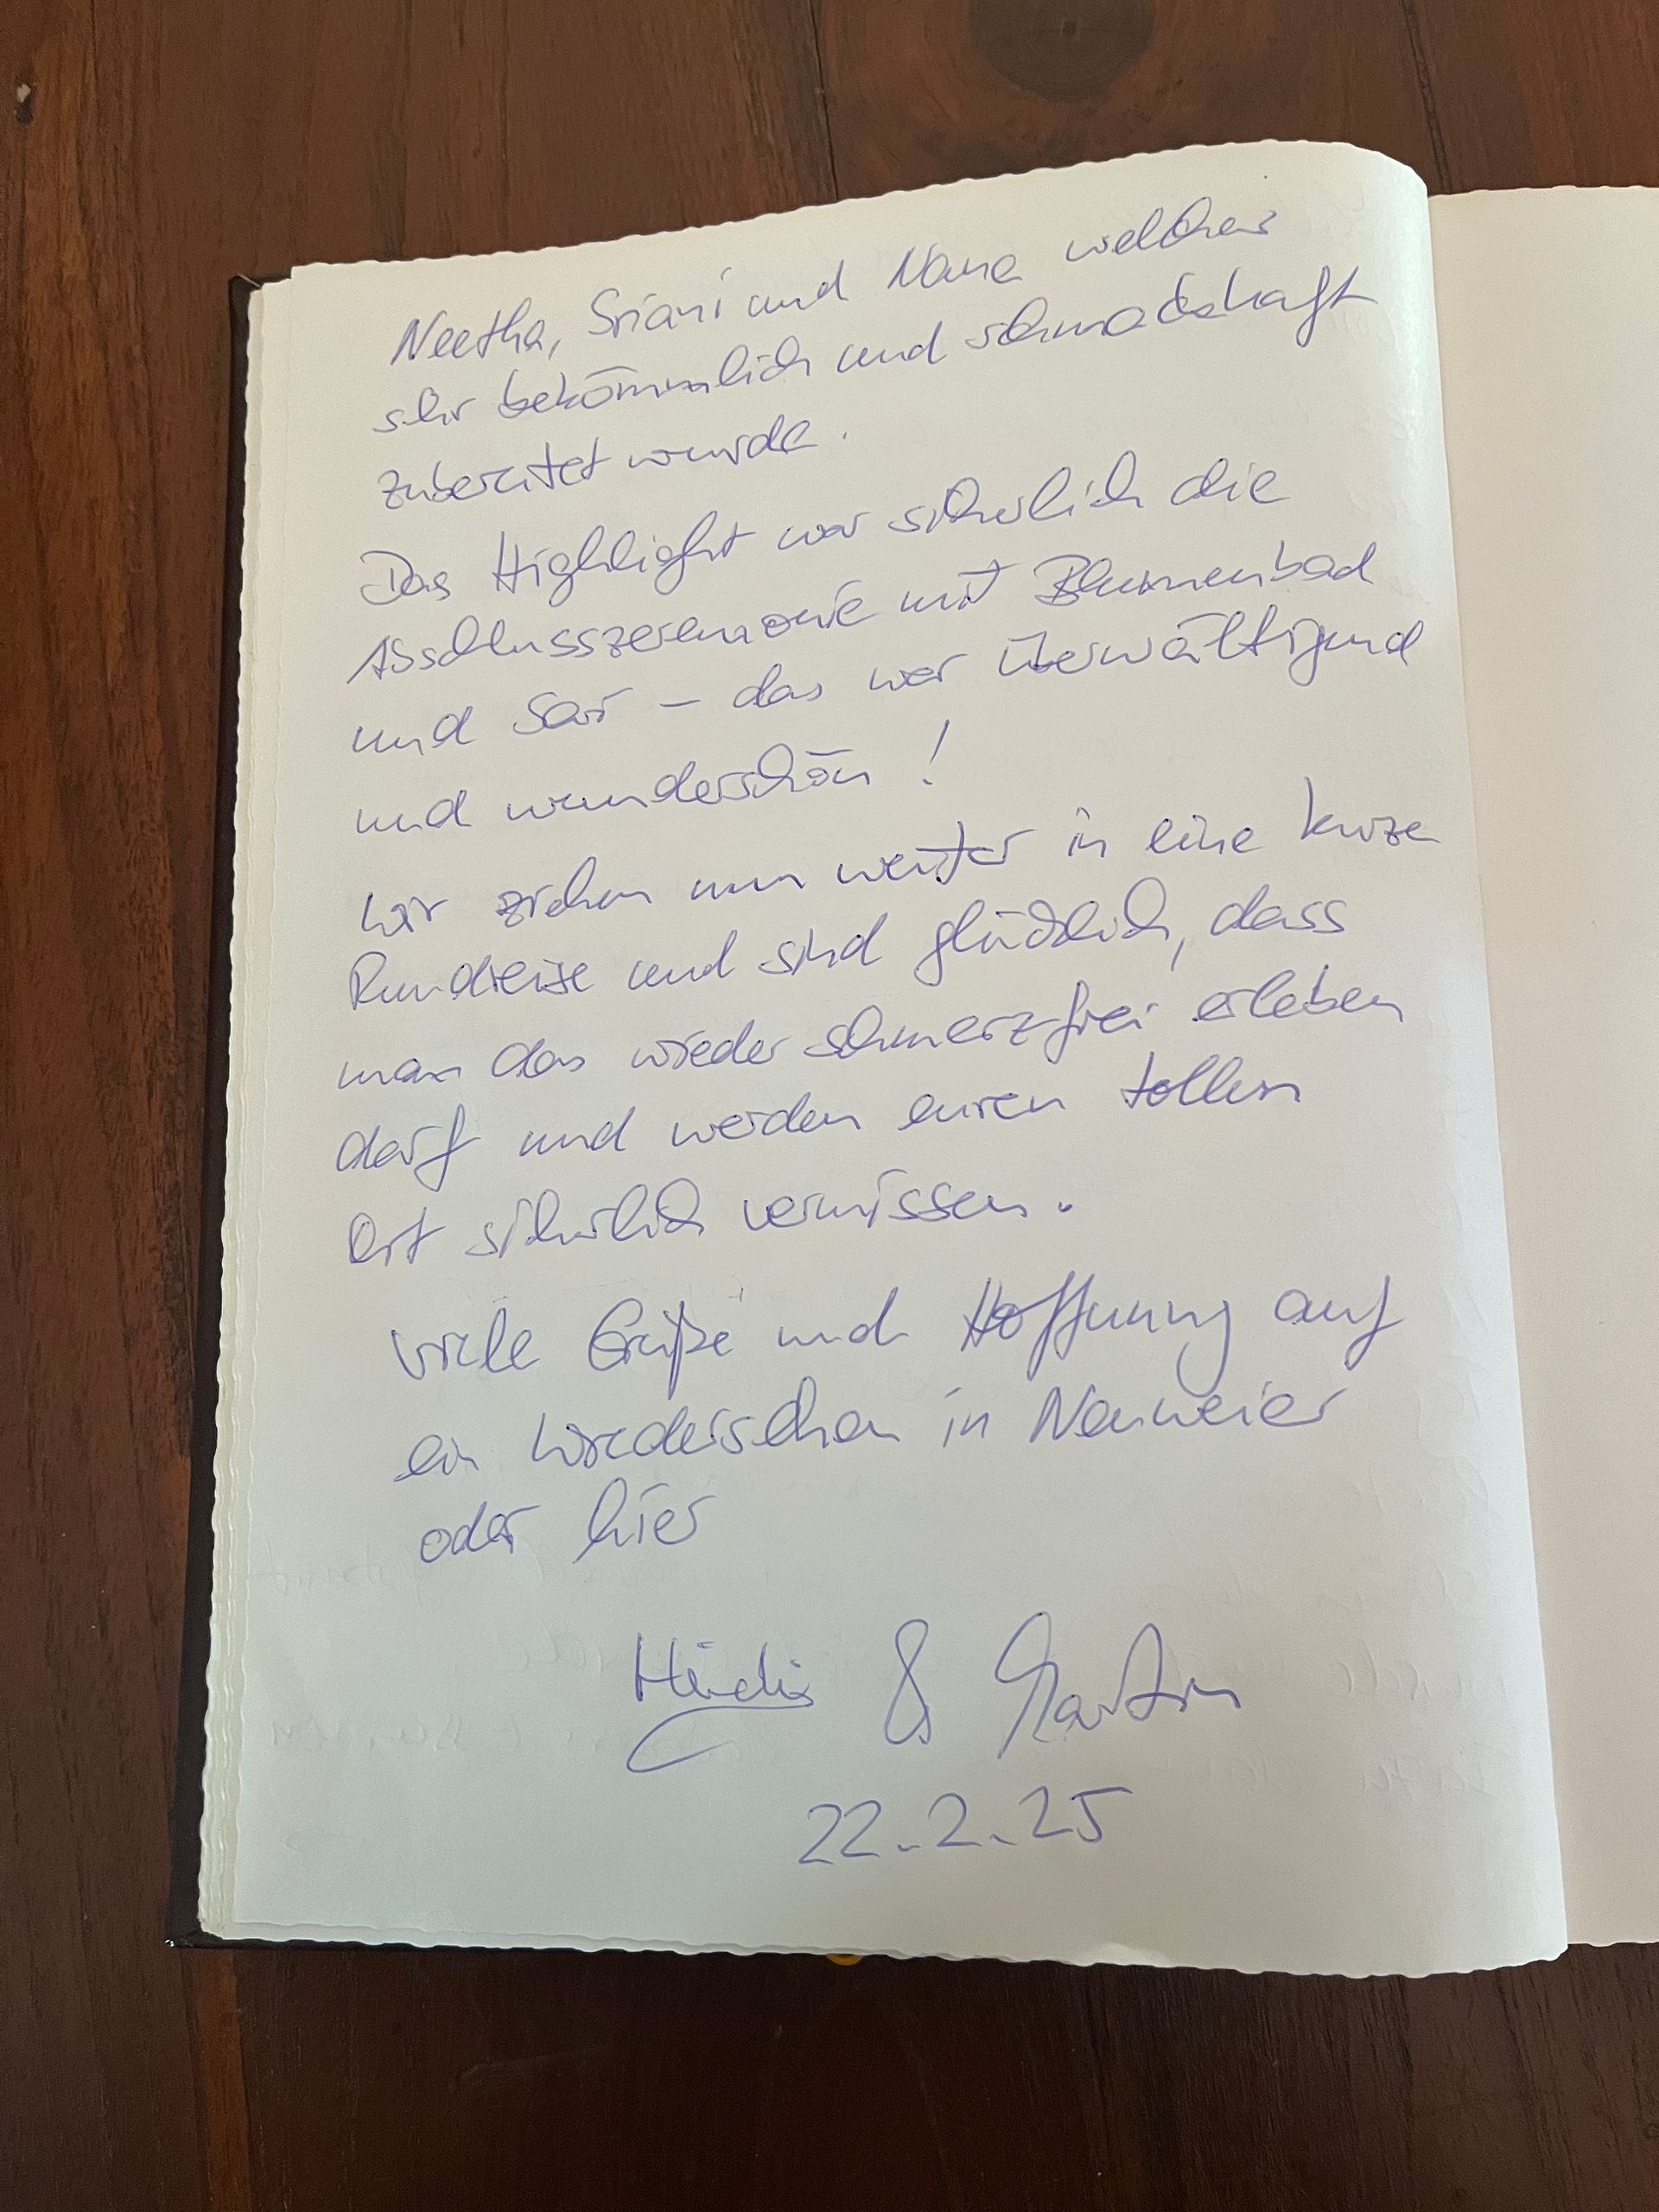 Neetha, Sriani und Nana welches
sehr bekömmlich und schmackhaft
zubereitet wurde.
Das Highlight war sicherlich die
Abschlusszeremonie mit Blumenbad
und Sari – das war überwältigend
und wunderschön!
Wir ziehen nun weiter in eine kurze
Rundreise und sind glücklich, dass
man das wieder schmerzfrei erleben
darf und werden euren tollen
Ort sicherlich vermissen.
Viele Grüße und Hoffnung auf
ein Wiedersehen in Neuweier
oder hier
& Martin
22.2.25